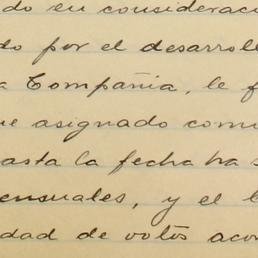 do en consideraci
do por el desarroll
a Compañia, le f
ue asignado como
asta la fecha ha s
ensuales, y el
dad de votos acor